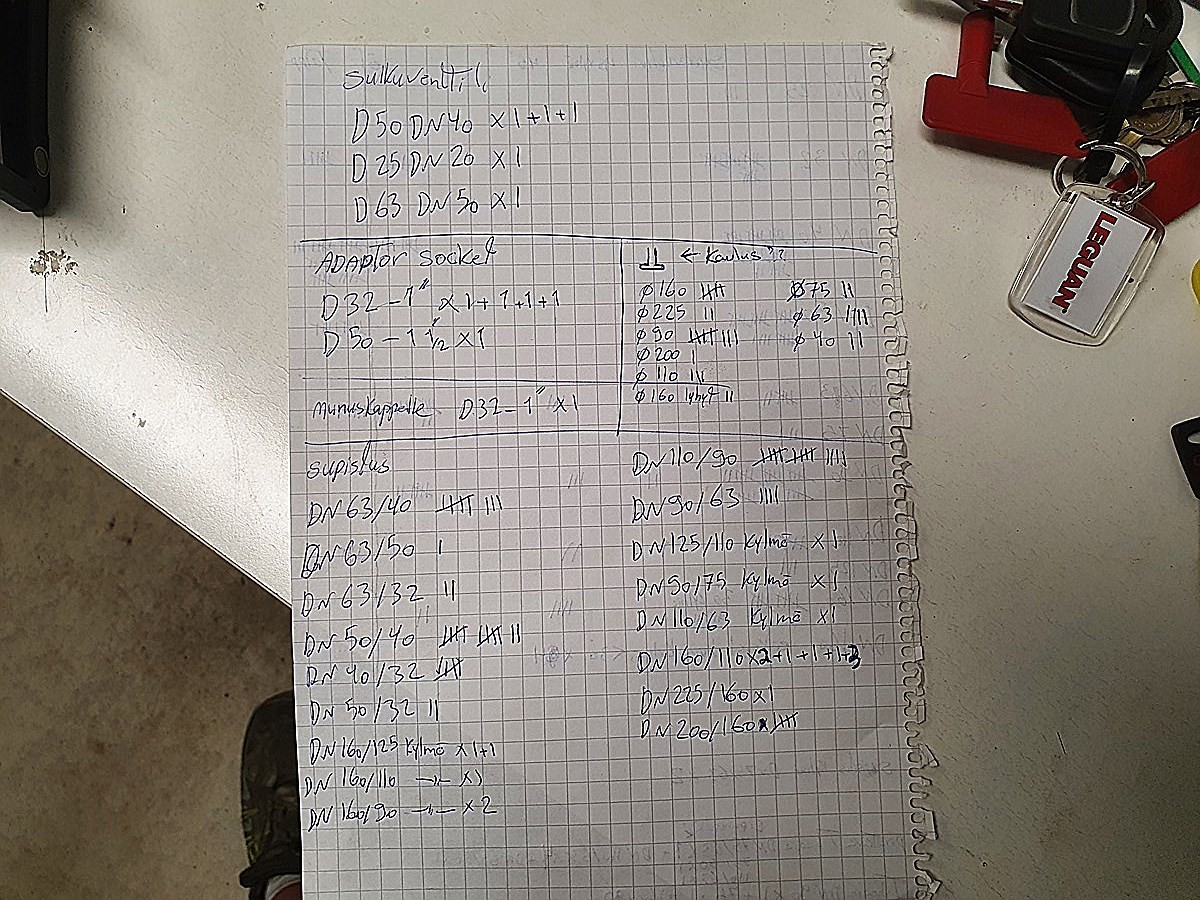 Sulkuventtiili
D50 DN40 x1+1+1
D25 DN20 x1
D63 DN50 x1
ADAPtor Socket
D32-1" x1+1+1+1
D50-1 1/2" x1
munuskappelle D32-1" x1
← Kaulus ??
Ø160 |||||
Ø225 ||
Ø90 ||||| |||
Ø200 |
Ø110 |||
Ø160 lyhyt ||
Ø75 ||
Ø63 ||||
Ø40 ||
Supistus
DN63/40 ||||| |||
DN63/50 |
DN63/32 ||
DN50/40 ||||| ||||| ||
DN40/32 |||||
DN50/32 ||
DN160/125 Kylmä x1+1
DN160/110 —"— x1
DN160/90 —"— x2
DN110/90 ||||| ||||| ||||
DN90/63 ||||
DN125/110 Kylmä x1
DN90/75 Kylmä x1
DN110/63 Kylmä x1
DN160/110x2+1+1+1+3
DN225/160x1
DN200/160x|||||
LEGUAN